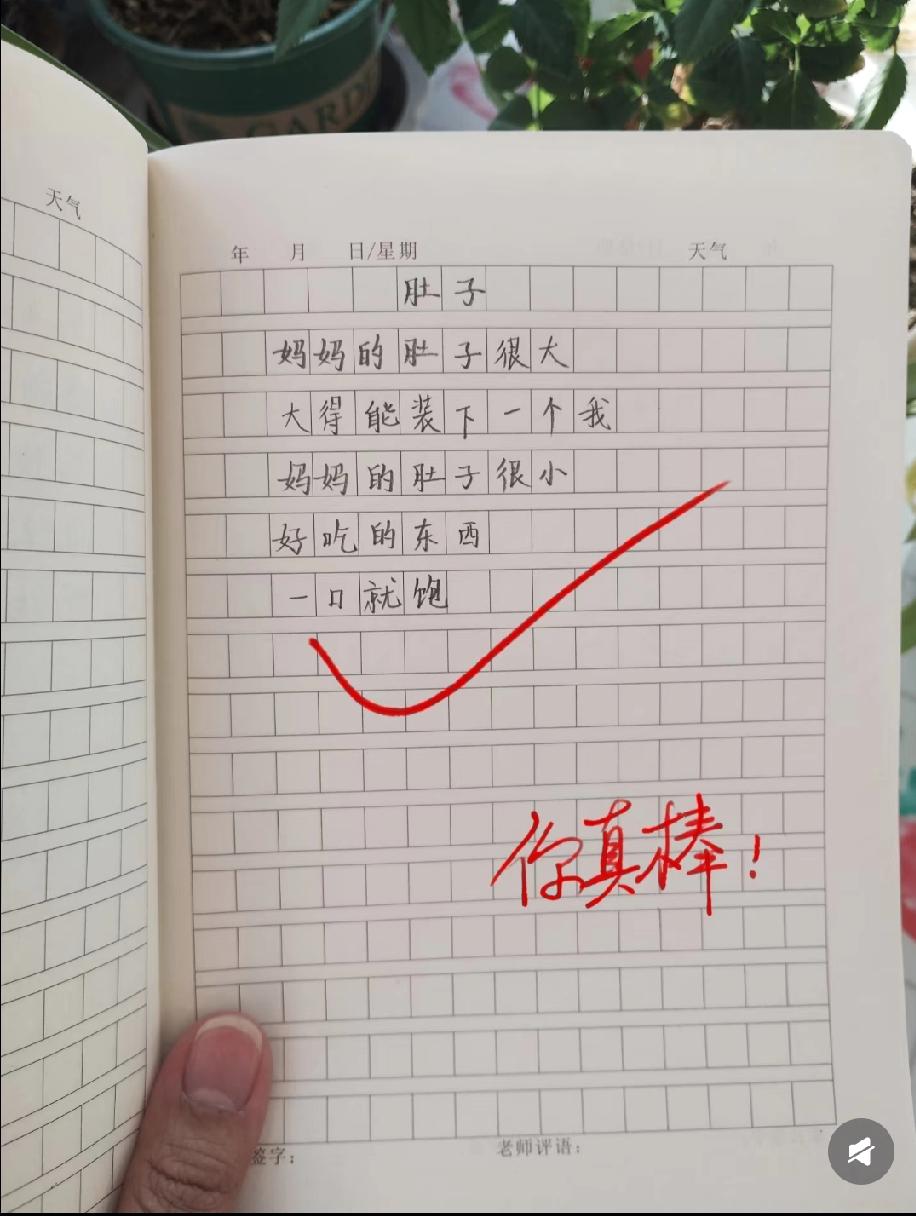 GARDE
天气
年 月 日/星期 天气
肚子
妈妈的肚子很大
大得能装下一个我
妈妈的肚子很小
好吃的东西
一口就饱
你真棒!
签字: 老师评语: